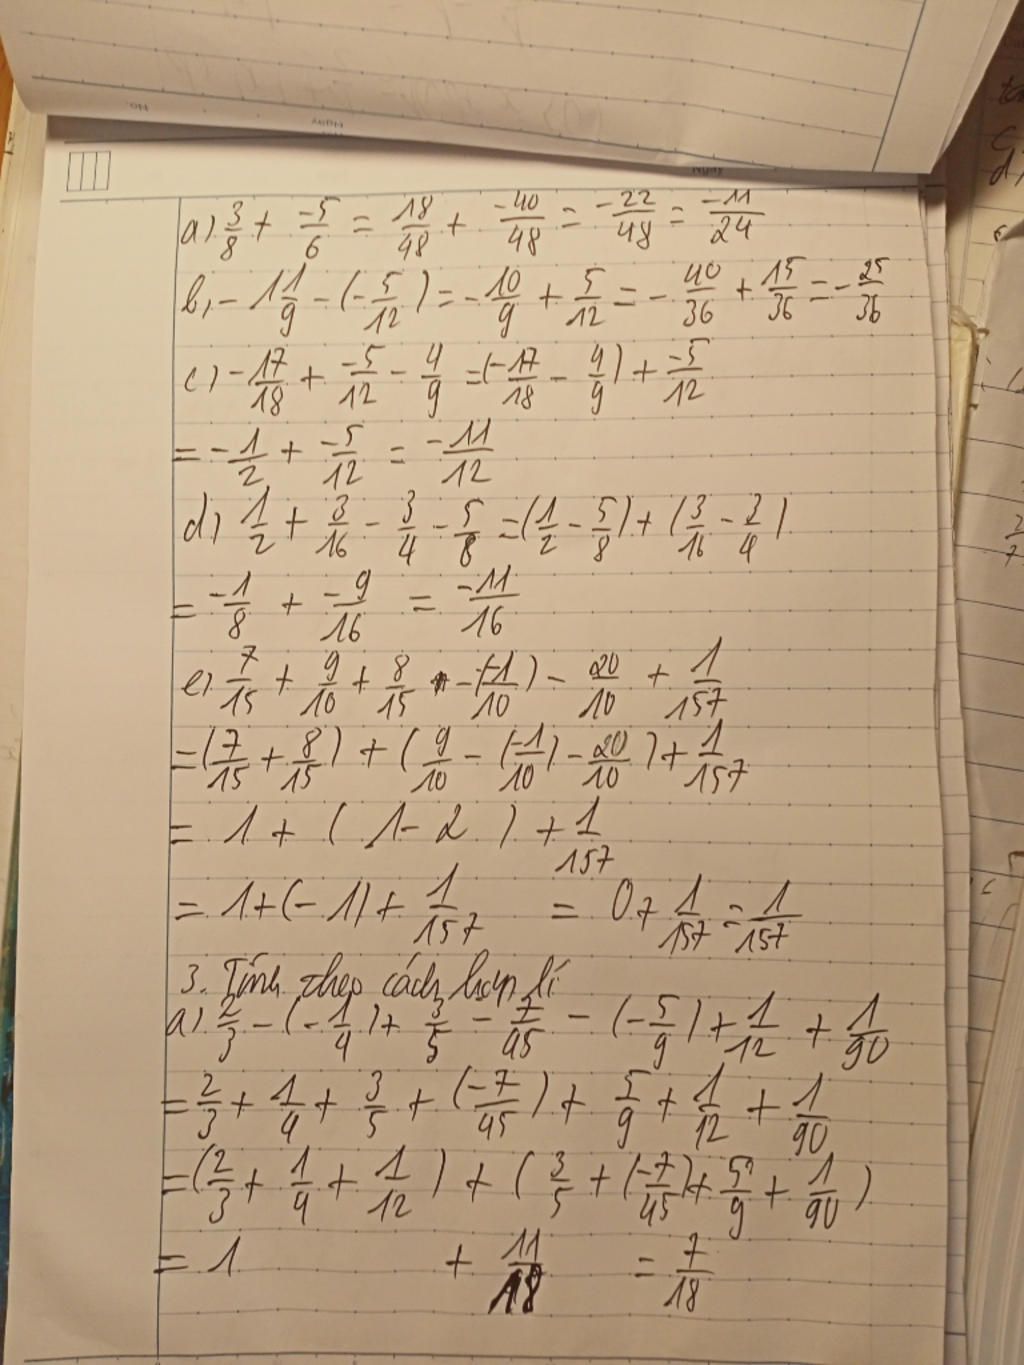 No.
Ngày
a) 3/8 + -5/6 = 18/48 + -40/48 = -22/48 = -11/24
b, -1 1/9 - (-5/12) = -10/9 + 5/12 = -40/36 + 15/36 = -25/36
c) -17/18 + -5/12 - 4/9 = (-17/18 - 4/9) + -5/12
= -1/2 + -5/12 = -11/12
d) 1/2 + 3/16 - 3/4 - 5/8 = (1/2 - 5/8) + (3/16 - 3/4)
= -1/8 + -9/16 = -11/16
e) 7/15 + 9/10 + 8/15 - (-1/10) - 20/10 + 1/157
= (7/15 + 8/15) + (9/10 - (-1/10) - 20/10) + 1/157
= 1 + (1 - 2) + 1/157
= 1 + (-1) + 1/157 = 0 + 1/157 = 1/157
3. Tính theo cách hợp lí
a) 2/3 - (-1/4) + 3/5 - 7/45 - (-5/9) + 1/12 + 1/90
= 2/3 + 1/4 + 3/5 + (-7/45) + 5/9 + 1/12 + 1/90
= (2/3 + 1/4 + 1/12) + (3/5 + (-7/45) + 5/9 + 1/90)
= 1 + 11/18 = 7/18